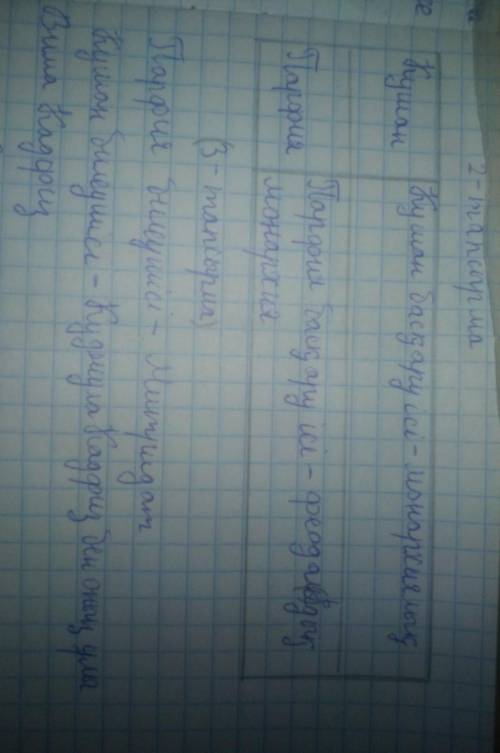 2-тапсырма
Кушан Кушан басқарушісі-монархиялық
Парфия Парфия басқарушісі-феодалдық
монархия
(3-тапсырма)
Парфия билеушісі-Митридат
Кушан билеушісі-Куджула Кадфиз бен оның ұлы
Вима Кадфиз